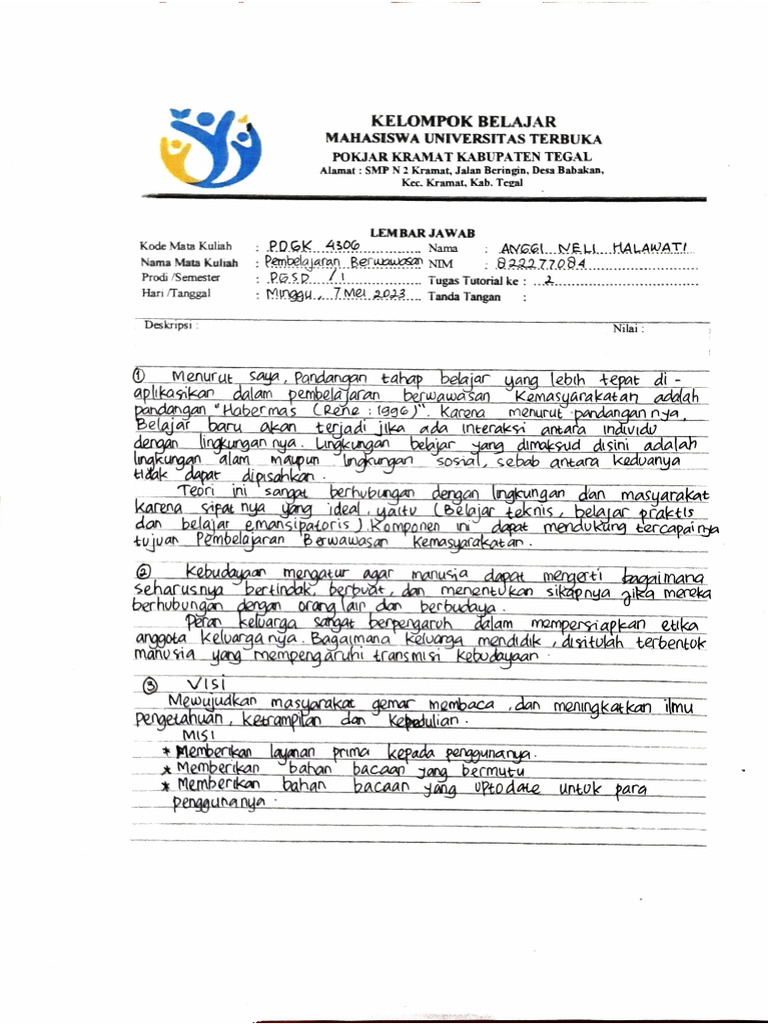 KELOMPOK BELAJAR
MAHASISWA UNIVERSITAS TERBUKA
POKJAR KRAMAT KABUPATEN TEGAL
Alamat : SMP N 2 Kramat, Jalan Beringin, Desa Babakan,
Kec. Kramat, Kab. Tegal
LEMBAR JAWAB
Kode Mata Kuliah : PDGK 4306 Nama : ANGGI NELI HALAWATI
Nama Mata Kuliah : Pembelajaran Berwawasan NIM : 822277084
Prodi /Semester : PGSD / 1 Tugas Tutorial ke : 2
Hari /Tanggal : Minggu, 7 Mei 2023 Tanda Tangan :
Deskripsi : Nilai :
① Menurut saya, Pandangan tahap belajar yang lebih tepat di -
aplikasikan dalam pembelajaran berwawasan Kemasyarakatan adalah
pandangan "Habermas (Rene : 1996)". Karena menurut pandangannya,
Belajar baru akan terjadi jika ada interaksi antara individu
dengan lingkungannya. Lingkungan belajar yang dimaksud disini adalah
lingkungan alam maupun lingkungan sosial, sebab antara keduanya
tidak dapat dipisahkan.
Teori ini sangat berhubungan dengan lingkungan dan masyarakat
karena sipatnya yang ideal, yaitu (Belajar teknis, belajar praktis
dan belajar emansipatoris). Komponen ini dapat mendukung tercapainya
tujuan Pembelajaran Berwawasan Kemasyarakatan.
② Kebudayaan mengatur agar manusia dapat mengerti bagaimana
seharusnya bertindak, berbuat, dan menentukan sikapnya jika mereka
berhubungan dengan orang lair dan berbudaya.
Peran keluarga sangat berpengaruh dalam mempersiapkan etika
anggota keluarganya. Bagaimana keluarga mendidik, disitulah terbentok
manusia yang mempengaruhi transmisi kebudayaan.
③ VISI
Mewujudkan masyarakat gemar membaca, dan meningkatkan ilmu
Pengetahuan, ketrampilan dan Kepedulian.
MISI
* Memberikan layanan prima kepada penggunanya.
* Memberikan bahan bacaan yang bermutu
* Memberikan bahan bacaan yang uptodate untuk para
penggunanya.